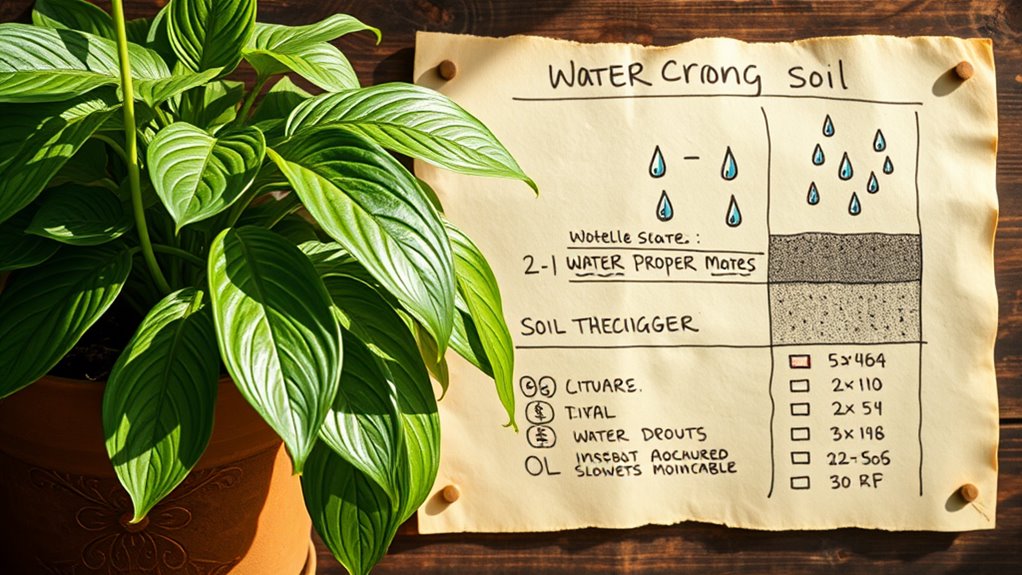 WATER Crong Soil
Wotelle Scare:
2-1 WATER PROPER MATES
SOIL THECIGGER
CITUARE.
TIVAL
WATER DPOUTS
INSEBT AOCHURED
SLOWETS MOINCABLE
OL
5x464
2x110
2x54
3x198
22-505
30 RF